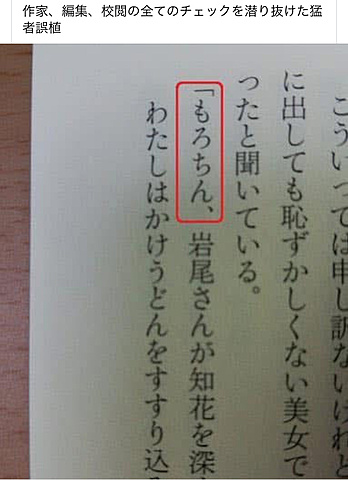 作家、編集、校閲の全てのチェックを潜り抜けた猛
者誤植
こういっては申し訳ないけれど
に出しても恥ずかしくない美女で
ったと聞いている。
「もろちん、岩尾さんが知花を深
わたしはかけうどんをすすり込